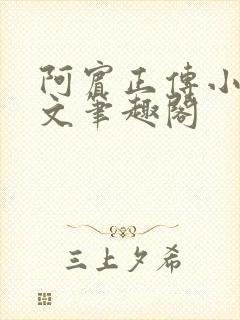 阿賓正傳小
文筆趣閣
三上夕希